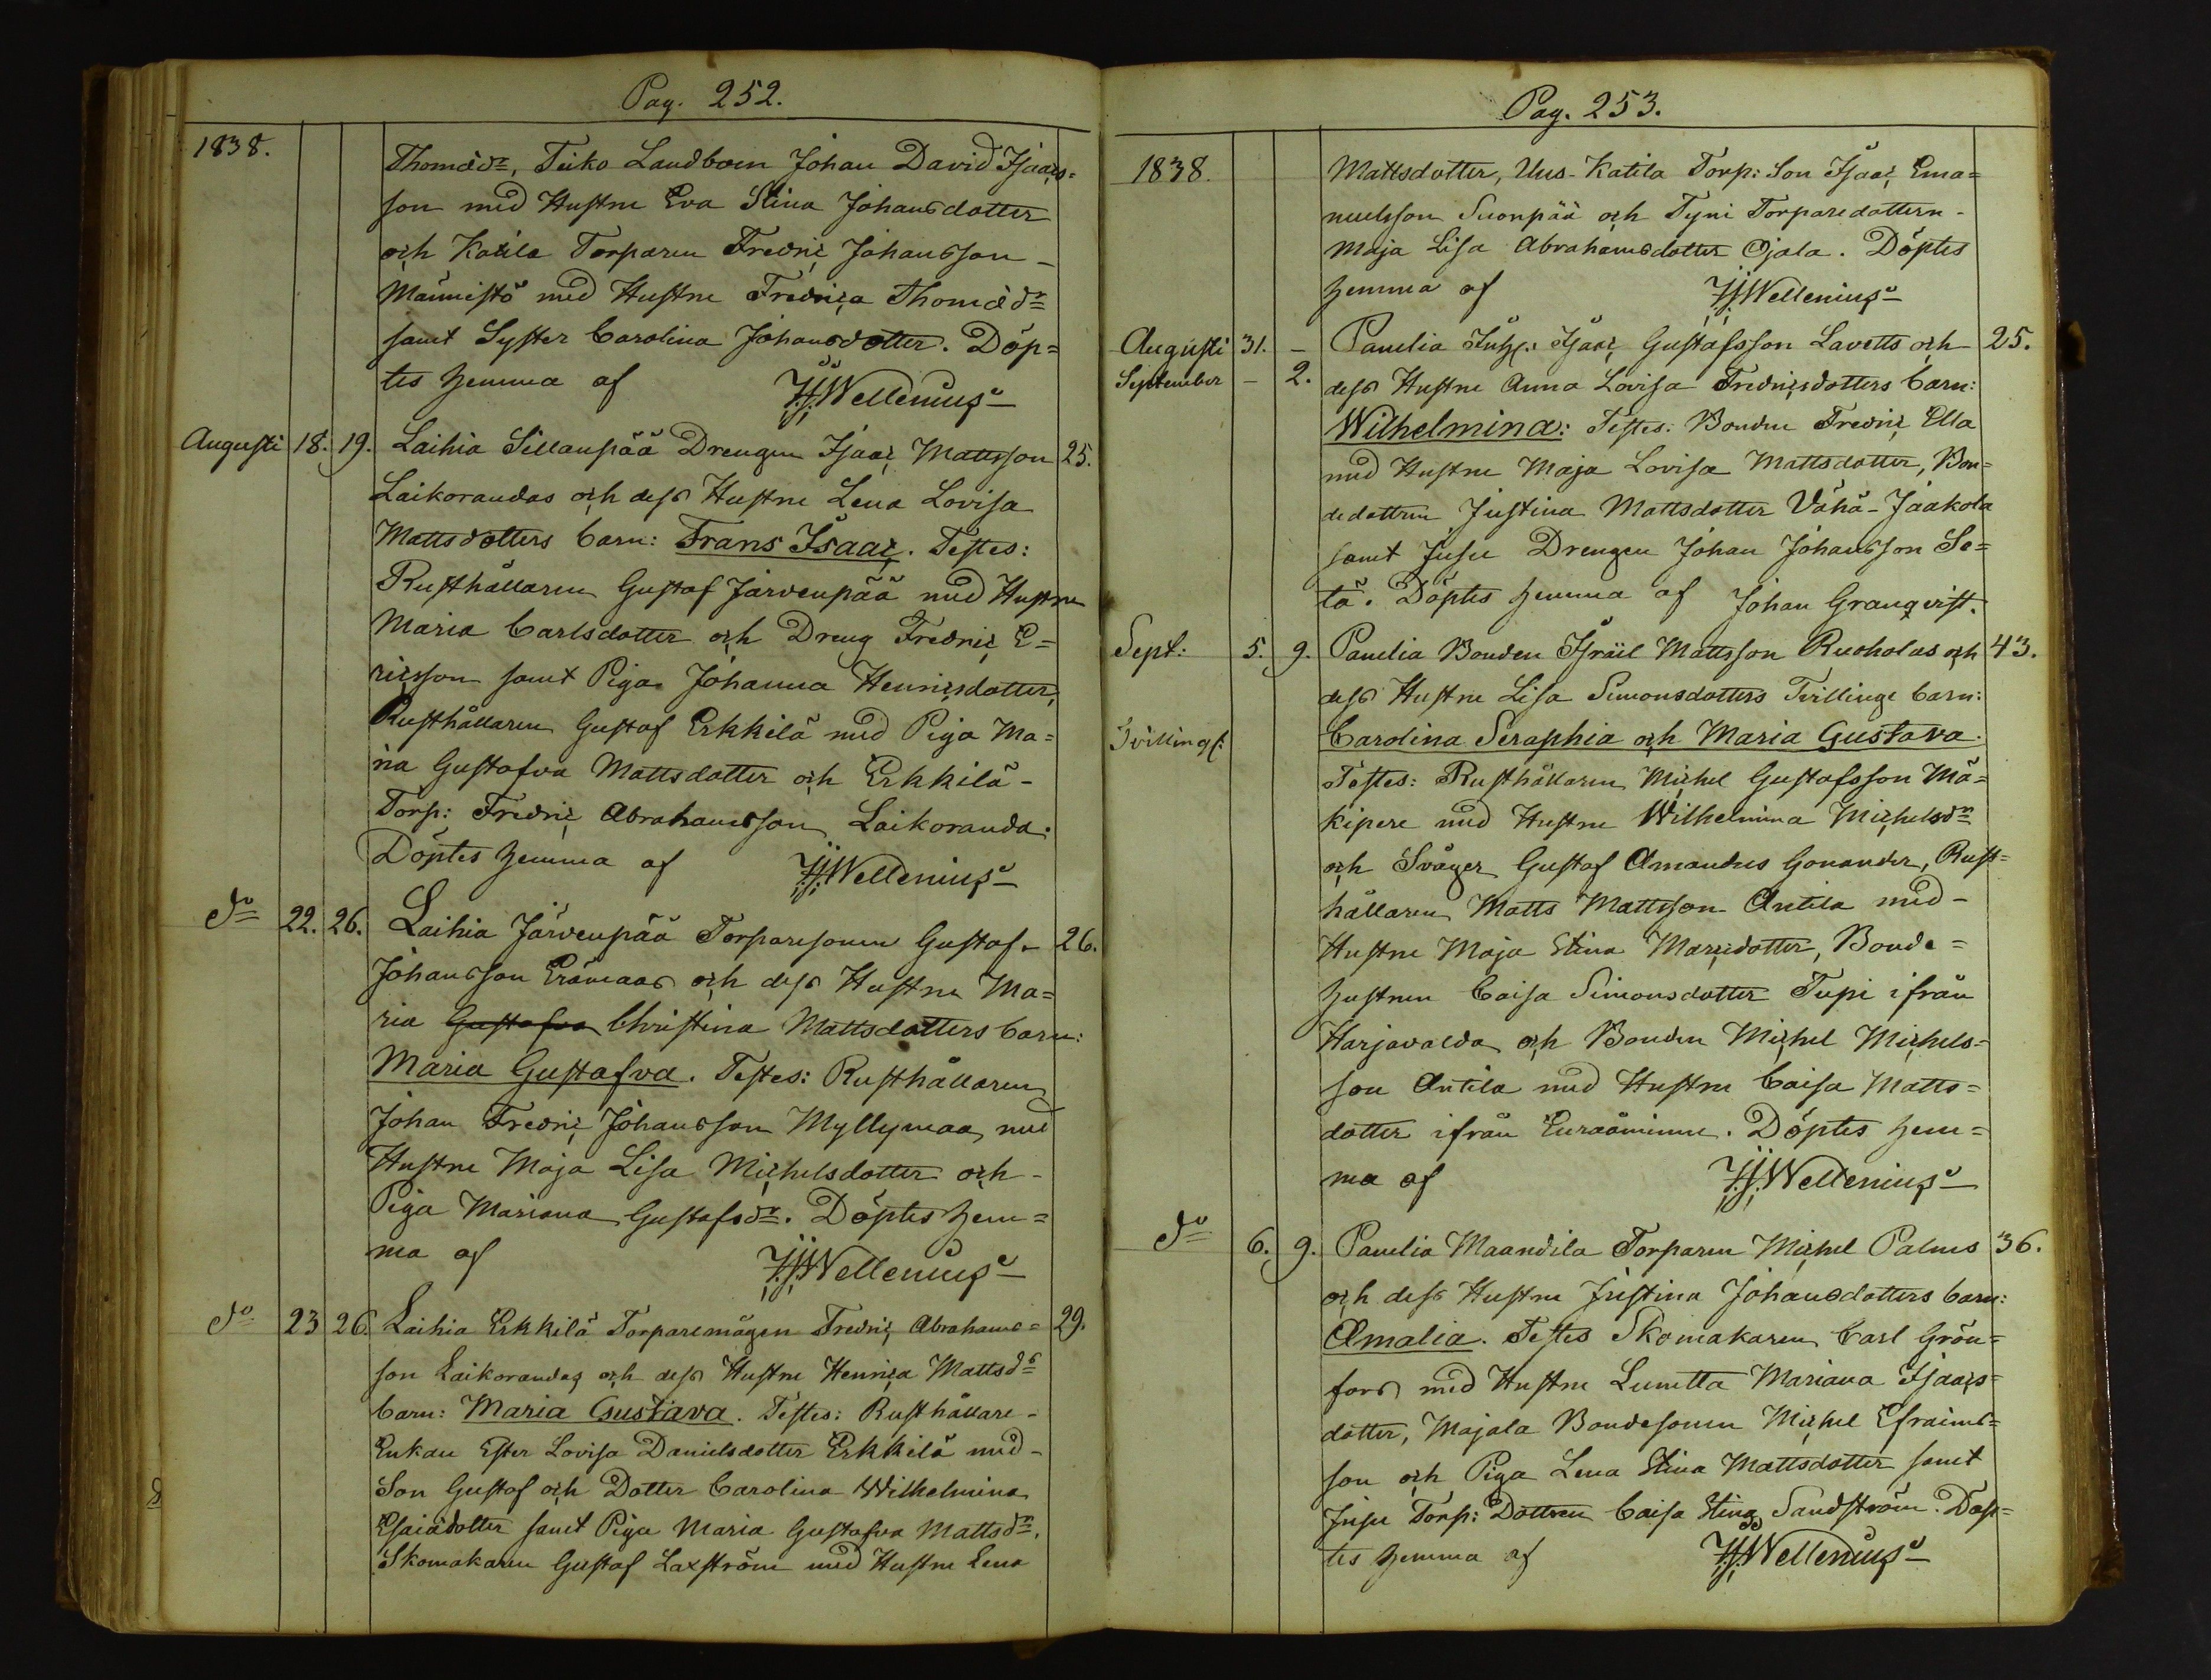 Pag. 252.
1838.
Thomædr, Teiko Landboen Johan David Isaacs=
son med Hustru Eva Stina Johansdotter
och Katila Torparen Fredric Johansson -
Männistö med Hustru Fredrica Thomædr
samt Syster Carolina Johansdotter. Döp=
tes hemma af HJWellenius
Augusti 18. 19. Laihia Sillanpää Drengen Isaac Mattsson 25.
Laikorandas och dess Hustru Lena Lovisa
Mattsdotters barn: Frans Isaac. Testes:
Rusthållaren Gustaf Järvenpää med Hustru
Maria Carlsdotter och Dreng Fredric E=
ricsson samt Piga Johanna Henricsdotter,
Rusthållaren Gustaf Erkkilä med Piga Ma=
ria Gustafva Mattsdotter och Erkkilä -
Torp: Fredric Abrahamsson Laikoranda.
Döptes hemma af HJWellenius
do 22. 26. Laihia Järvenpää Torparesonen Gustaf - 26.
Johansson Erämaas och dess Hustru Ma=
ria Gustafva Christina Mattsdotters barn:
Maria Gustafva. Testes: Rusthållaren
Johan Fredric Johansson Myllymaa med
Hustru Maja Lisa Michelsdotter och -
Piga Mariana Gustafsdr. Döptes hem=
ma af HJWellenius
do 23 26. Laihia Erkkilä Torparemågen Fredric Abrahams= 29.
son Laikorandas och dess Hustru Henrica Mattsds
barn: Maria Gustava. Testes: Rusthållare -
Enkan Ester Lovisa Danielsdotter Erkkilä med -
Son Gustaf och Dotter Carolina Wilhelmina
Esaiædotter samt Piga Maria Gustafva Mattsdr.
Skomakaren Gustaf Laxström med Hustru Lena
Pag. 253.
1838.
Mattsdotter, Uus-Katila Torp: Son Isaac Ema=
nuelsson Suonpää och Tyni Torparedottern -
Maja Lisa Abrahamsdotter Ojala. Döptes
hemma af HJWellenius
Augusti 31. - Panelia Isaac Gustafsson Lavetts och 25.
September - 2. dess Hustru Anna Lovisa Fredricsdotters barn:
Wilhelmina: Testes: Bonden Fredric Ella
med Hustru Maja Lovisa Mattsdotter, Bon=
dedottren Justina Mattsdotter Vähä-Jaakola
samt Jusu Drengen Johan Johansson Se=
tä. Döptes hemma af Johan Granqvist.
Sept: 5. 9. Panelia Bonden Israël Mattsson Ruoholas och 43.
dess Hustru Lisa Simonsdotters Tvillinge barn:
Tvillingr: Carolina Seraphia och Maria Gustava.
Testes: Rusthållaren Michel Gustafsson Mä=
kipere med Hustru Wilhelmina Michelsdr
och Svåger Gustaf Amandus Gonander, Rust=
hållaren Matts Mattsson Antila med -
Hustru Maja Stina Marcidotter, Bonde=
hustrun Caisa Simonsdotter Tupi ifrån
Harjavalda och Bonden Michel Michels=
son Antila med Hustru Caisa Matts=
dotter ifrån Euraåminne. Döptes hem=
ma af HJWellenius
do 6. 9. Panelia Maandila Torparen Michel Palms 36.
och dess Hustru Justina Johansdotters barn:
Amalia. Testes Skomakaren Carl Grön=
fors med Hustru Lunetta Mariana Isaacs=
dotter, Majala Bondesonen Michel Efraims=
son och Piga Lena Stina Mattsdotter samt
Jusu Torp: Dottren Caisa Stina Sandström. Döp=
tes hemma af HJWellenius